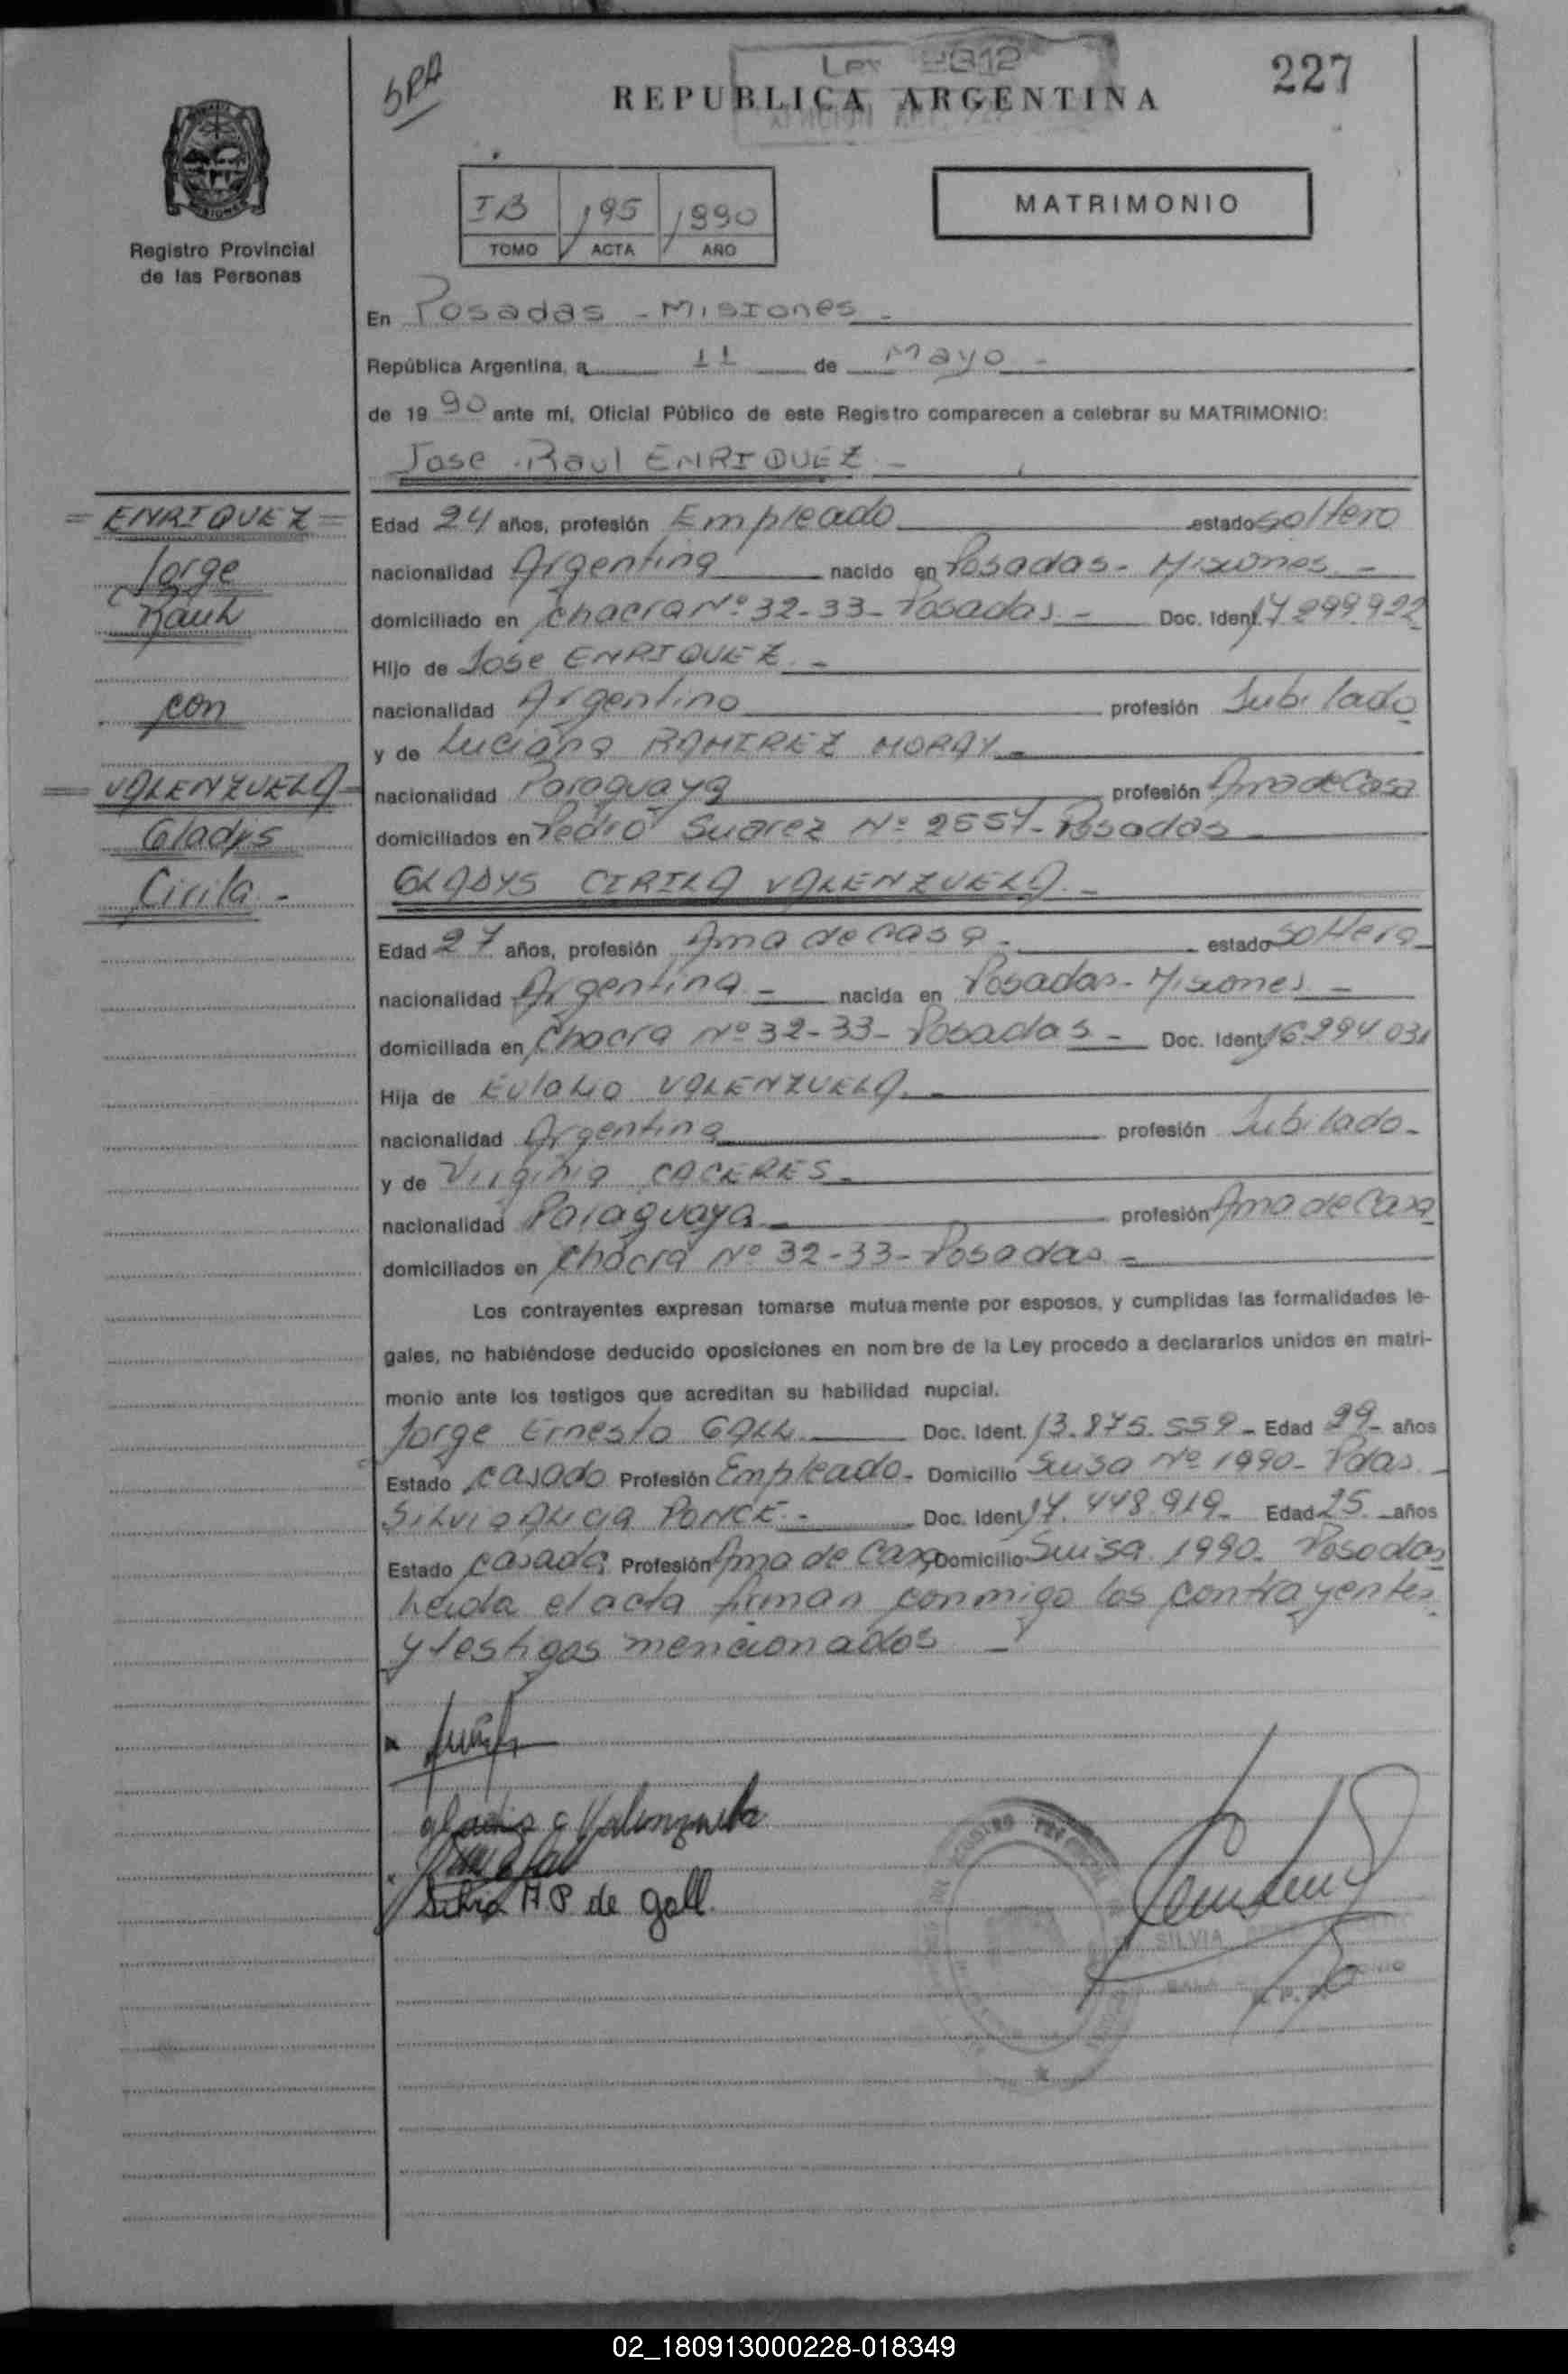 5RA
Ley 2312
227
REPUBLICA ARGENTINA
MISIONES
Registro Provincial
de las Personas
IB 195 1990
TOMO ACTA AÑO
MATRIMONIO
En Posadas - Misiones -
República Argentina, a 11 de Mayo -
de 19 90 ante mí, Oficial Público de este Registro comparecen a celebrar su MATRIMONIO:
Jose Raul ENRIQUEZ -
= ENRIQUEZ =
Jorge
Raul
con
= VALENZUELA =
Gladys
Cirila -
Edad 24 años, profesión Empleado estado soltero
nacionalidad Argentina nacido en Posadas - Misiones -
domiciliado en Chacra Nº 32-33- Posadas - Doc. Ident. 17.299.922
Hijo de Jose ENRIQUEZ. -
nacionalidad Argentino profesión Jubilado
y de Luciana RAMIREZ MORAY -
nacionalidad Paraguaya profesión Ama de Casa
domiciliados en Pedro Suarez Nº 2557- Posadas
GLADYS CIRILA VALENZUELA. -
Edad 27 años, profesión Ama de casa - estado soltera
nacionalidad Argentina - nacida en Posadas - Misiones -
domiciliada en Chacra Nº 32-33- Posadas - Doc. Ident. 16.294.031
Hija de Eulalio VALENZUELA. -
nacionalidad Argentina profesión Jubilado -
y de Virginia CACERES -
nacionalidad Paraguaya profesión Ama de Casa
domiciliados en Chacra Nº 32-33- Posadas -
Los contrayentes expresan tomarse mutuamente por esposos, y cumplidas las formalidades le-
gales, no habiéndose deducido oposiciones en nombre de la Ley procedo a declararlos unidos en matri-
monio ante los testigos que acreditan su habilidad nupcial.
Jorge Ernesto GALL Doc. Ident. 13.875.559 - Edad 29 - años
Estado casado Profesión Empleado - Domicilio Suisa Nº 1990 - Pdas -
Silvia Alicia PONCE - Doc. Ident. 17.448.919 - Edad 25 años
Estado casada Profesión Ama de Casa Domicilio Suisa 1990 - Posadas
Leida el acta firman conmigo los contrayentes
y testigos mencionados -
Gladis C Valenzuela
Silvia A. P de Gall
SILVIA
02_180913000228-018349